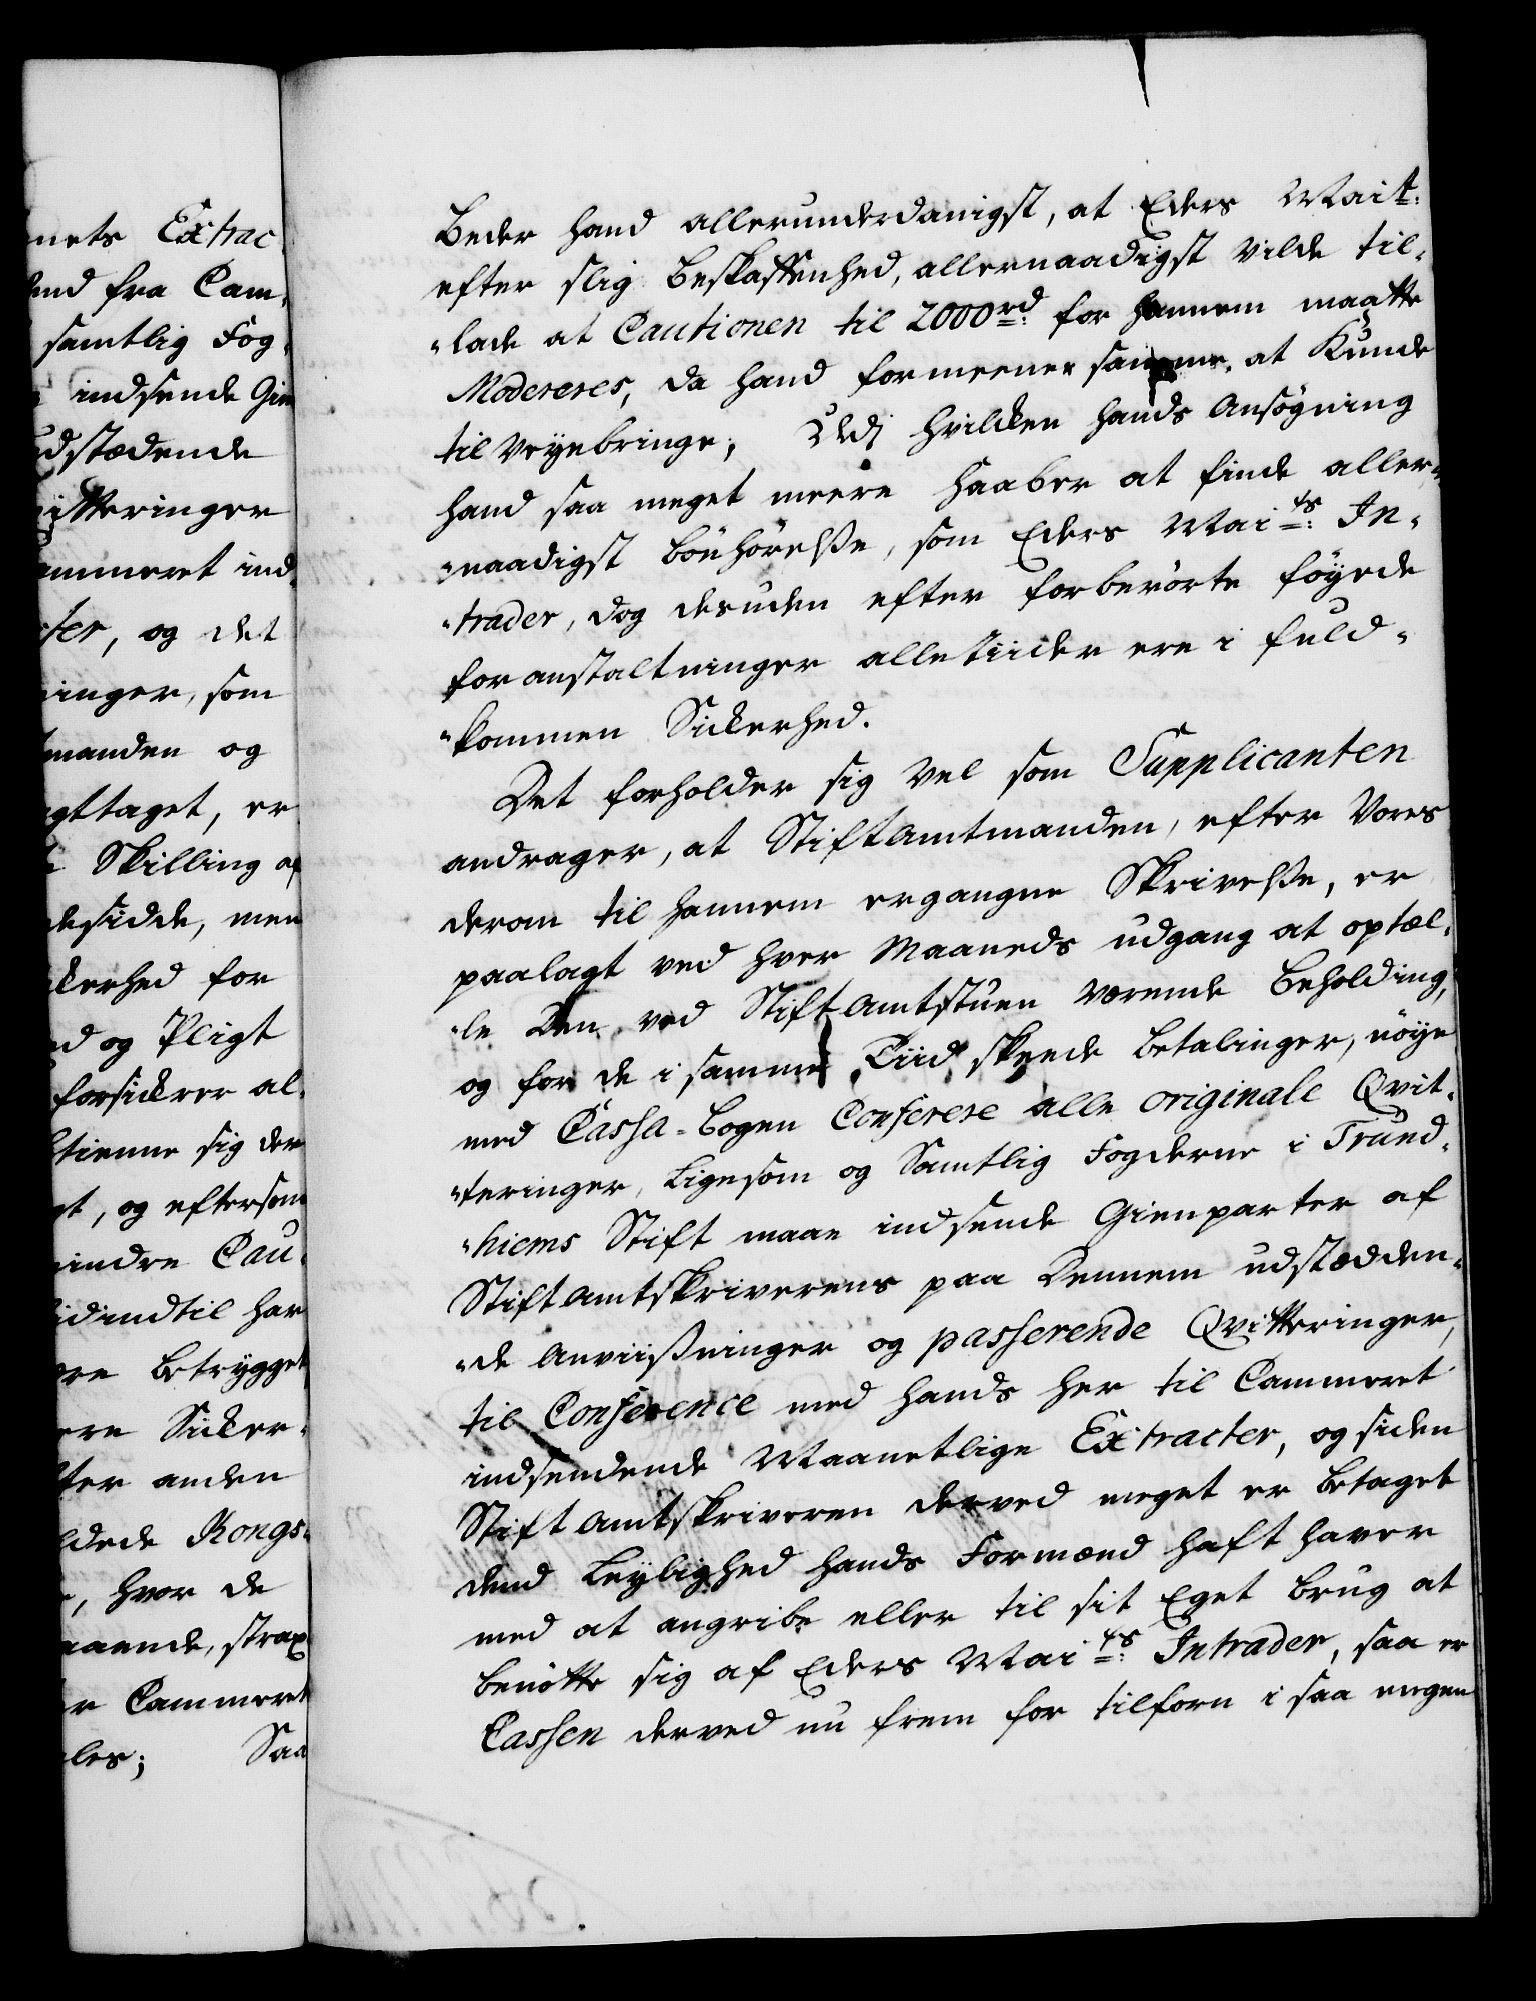 nets Extrac
end fra Cam¬
samtlig Fog¬
indsende Gien
dstædende
itteringer
ammeret ind¬
ter, og det
inger, som
manden og
gttaget, er
Skilling af
desidde, men
kerhed for
ed og Pligt
forsickrer al¬
tienne sig der
gt, og eftersom
mindre Cau¬
idindtil har
ere betrygget
ere Sicker¬
ter anden
ldede Kongs¬
, hvor de
aaende, strax
er Cammeret
les; Saa
Beder hand allerunderdanigst, at Eders Mait:
efter slig beskaffenhed, allernaadigst vilde til¬
„lade at Cautionen til 2000rd: for hannem maatte
Modereres, da hand formeener samme at Kunde
tilveyebringe; Udj hvilcken hands Ansøgning
hand saa meget meere haaber at finde aller¬
„naadigst bønhørelsse, som Eders Maits: In¬
„trader, dog desuden efter forberørte føyede
foranstaltninger alletiider ere i fuld¬
„kommen Sickerhed.
Det forholder sig vel som Supplicanten
andrager, at StiftAmtmanden, efter Vores
derom til hannem ergangne Skrivelsse, er
paalagt ved hver Maaneds udgang at optæl¬
„le Den ved StiftAmtstuen værende beholding,
og for de i samme Tiid skeede betalinger, nøye
med Cassa-bogen Conferere alle originale Qvit¬
„teringer, Ligesom og Samtlig Fogderne i Trund¬
„hiems Stift maae indsende Gienparter af
StiftAmtskriverens paa Dennem udstædden¬
„de Anviisninger og passerende Qvitteringer,
til Conference med hands her til Cammeret
indsendende Maanetlige Extracter, og siden
StiftAmtskriveren derved meget er betaget
dend Leylighed hands Formænd haft haver
med at angribe eller til sit Eget brug at
benøtte sig af Eders Maits: Intrader, saa er
Cassen derved nu frem for tilforn i saa megen